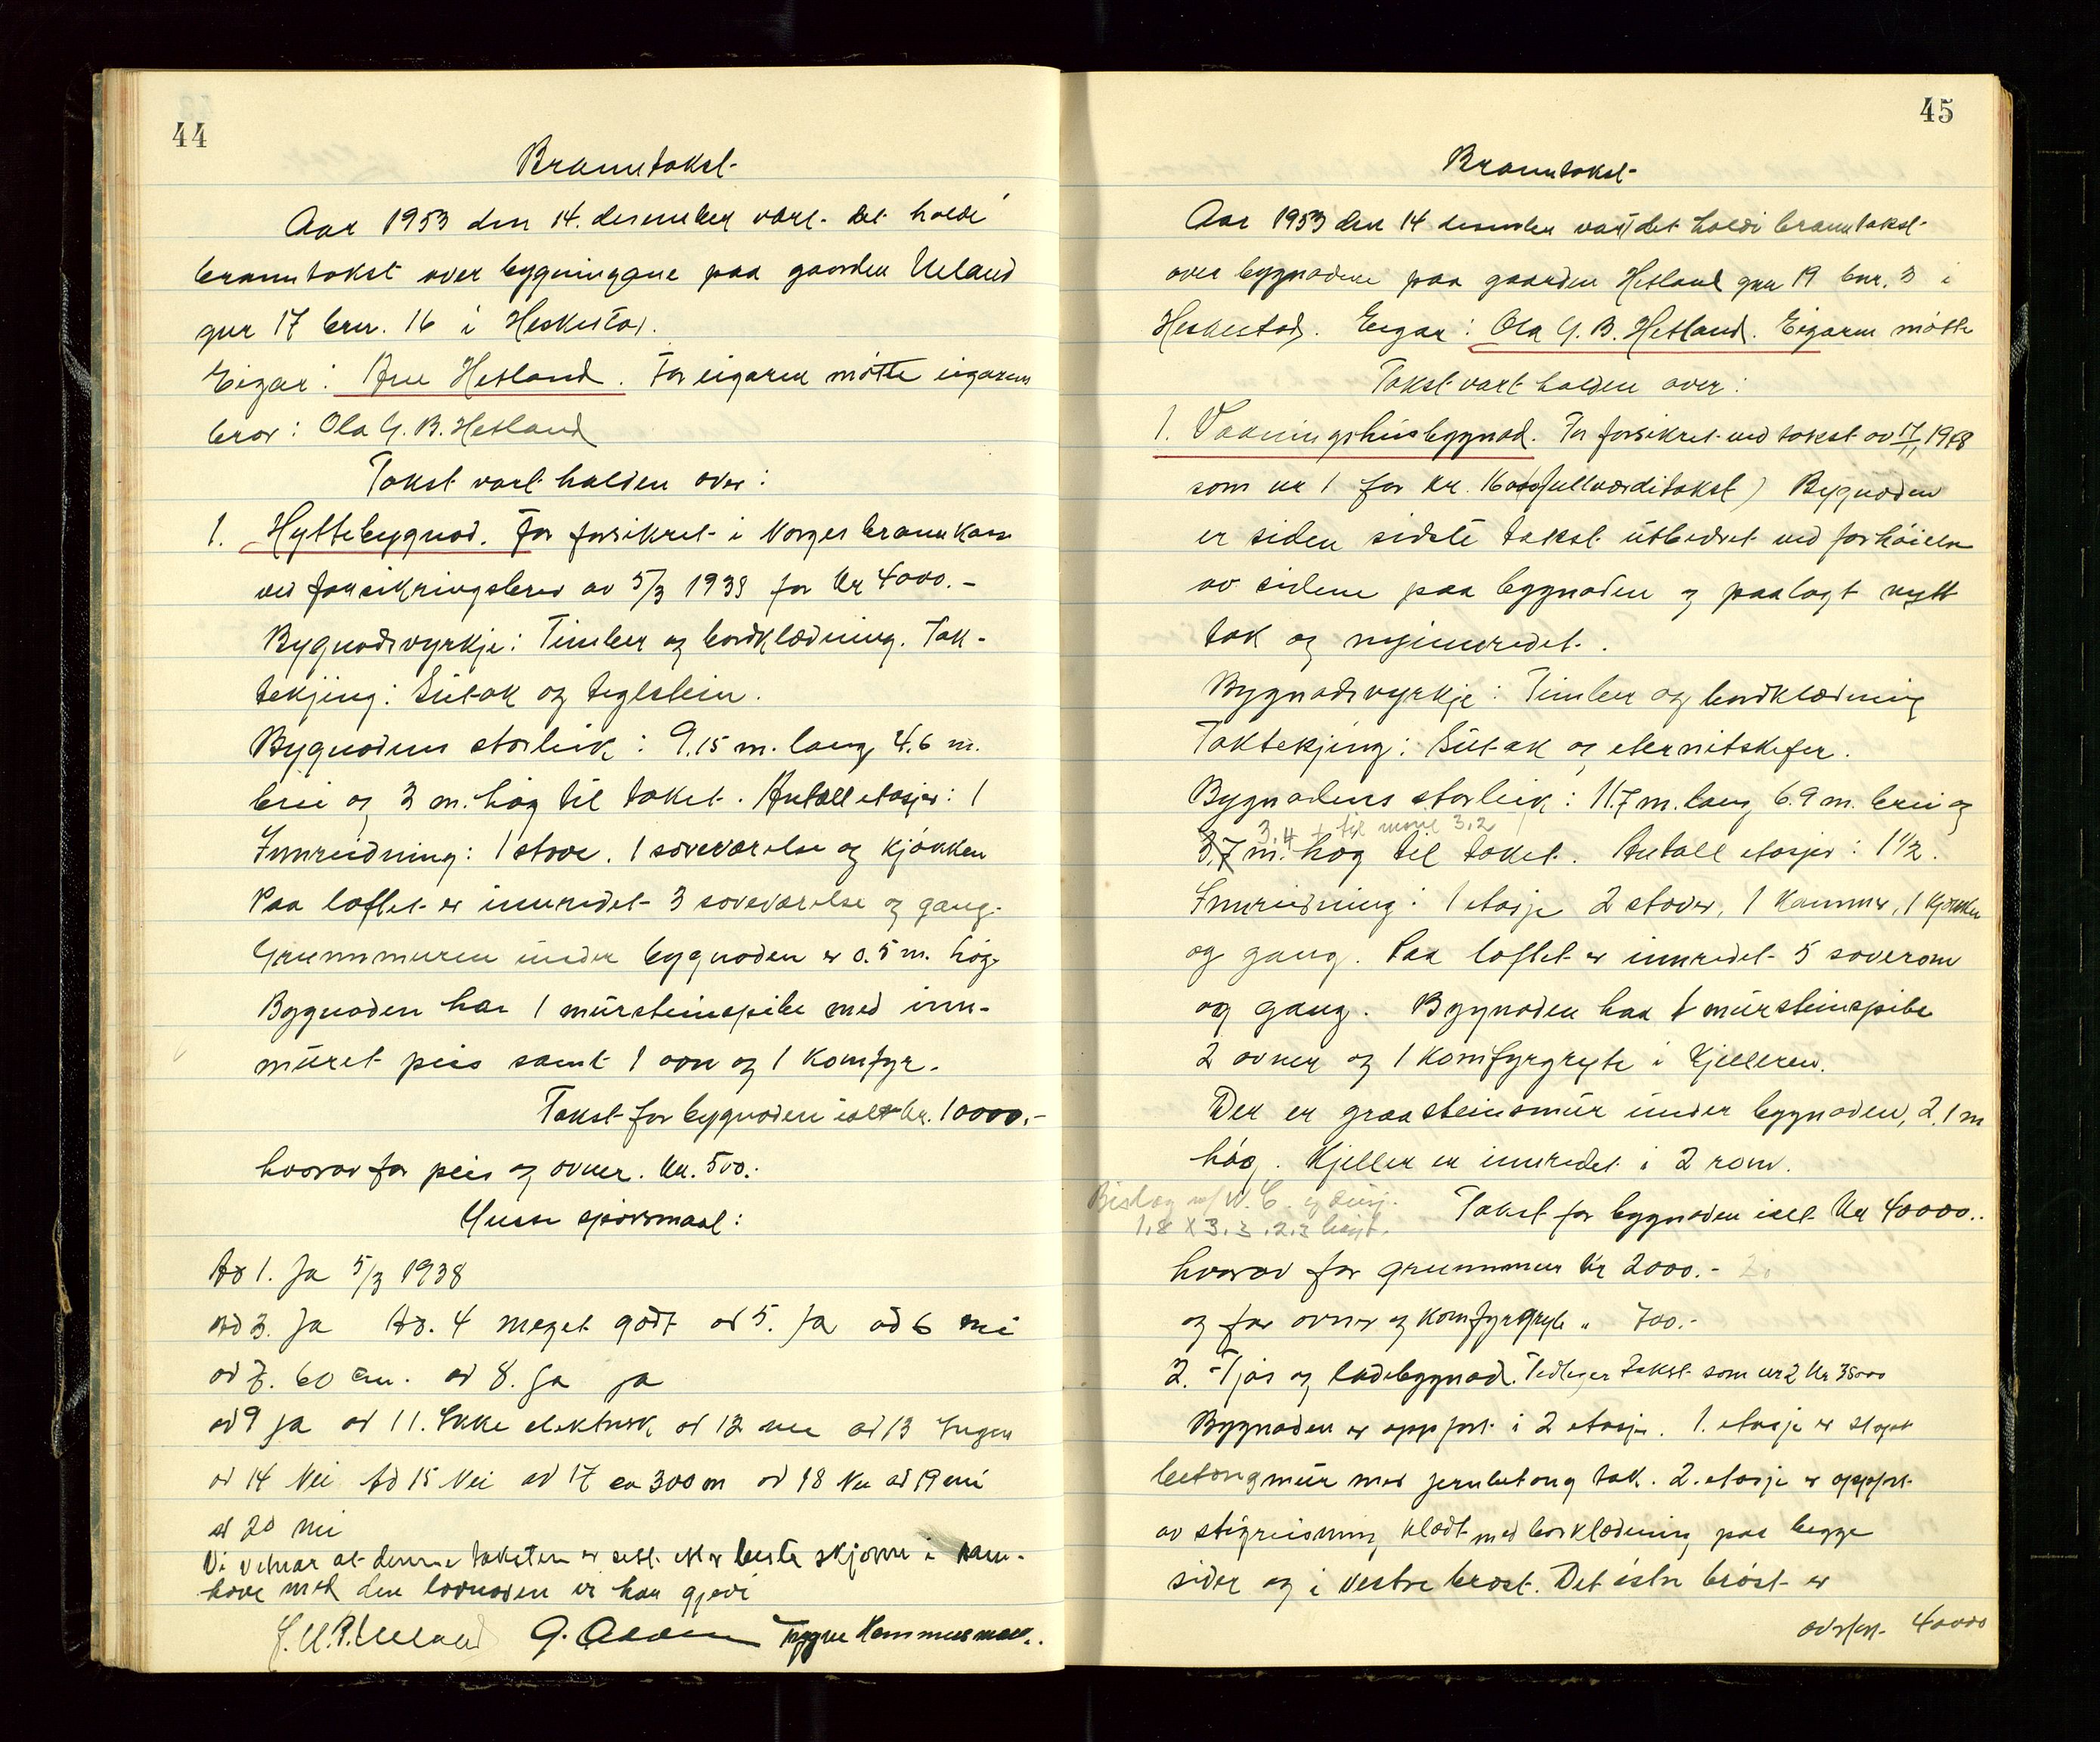 44
Branntakst
Aar 1953 den 14. desember vart det holdi
branntakst over bygningane paa gaarden Ueland
gnr 17 bnr. 16 i Heskestad.
Eigar: Arne Hetland. For eigaren møtte eigarens
bror: Ola G. B. Hetland
Takst vart halden over:
1. Hyttebygnad. Før forsikret i Norges brannkasse
ved forsikringsbrev av 5/3 1938 for kr 4000.-
Bygnadsvyrkje: Timber og bordklædning. Tak-
tekjing: Sutak og teglstein.
Bygnadens storleik: 9.15 m. lang, 4.6 m.
brei og 3 m. høg til taket. Antall etasjer: 1
Innreidning: 1 stove. 1 soveværelse og kjøkken
Paa loftet er innredet 3 soveværelse og gang.
Grunnmuren under bygnaden er 0.5 m. høg.
Bygnaden har 1 mursteinspibe med inn-
muret peis samt 1 ovn og 1 komfyr.
Takst for bygnaden ialt kr. 10000.-
hvorav for peis og ovner. kr. 500.-
Ymse spørsmaal:
Ad 1. Ja 5/3 1938
ad 3. Ja Ad. 4 meget godt ad 5. Ja ad 6 nei
ad 7. 60 cm. ad 8. Ja ja
ad 9 ja ad 11. Ikke elektrisk ad 12 nei ad 13 Ingen
ad 14 Nei Ad 15 Nei ad 17 ca 300 m ad 18 Nei ad 19 nei
ad 20 nei
Vi vitnar at denne taksten er sett etter beste skjønn i sam-
høve med den lovnaden vi har gjevi
G. Aa Trygve Hammersmark.
45
Branntakst
Aar 1953 den 14 desember vart det holdi branntakst
over bygnadene paa gaarden Hetland gnr 19 bnr. 3 i
Heskestad. Eigar: Ola G. B. Hetland. Eigaren møtte
Takst vart halden over:
1. Vaaningshusbygnad. Før forsikret ved takst av 17/11 1948
som nr 1 for kr. 16000 (fullverditakst) Bygnaden
er siden sidste takst utbedret ved forhøielse
av sidene paa bygnaden og paalagt nytt
tak og nyinnredet.
Bygnadsvyrkje: Timber og bordklædning
Taktekjing: Sutak og eternitskifer.
Bygnadens storleik: 11.7 m. lang 6.9 m. brei og
3.4 + til mone 3.2
3.7 m. høg til taket. Antall etasjer: 1½.
Innreidning: 1 etasje 2 stover, 1 kammer, 1 kjøkken
og gang. Paa loftet er innredet 5 soverom
og gang. Bygnaden har 1 mursteinspibe
2 ovner og 1 komfyrgryte i kjelleren.
Der er graasteinsmur under bygnaden, 2,1 m
høg. Kjeller er innredet i 2 rom.
Bislag m/ W.C. og dusj.
1,8 X 3.3. 2.3 høgt.
Takst for bygnaden ialt kr 40000..
hvorav for grunnmur kr 2000.-
og for ovner og komfyrgryte " 700.-
2. Fjøs og ladebygnad. Tidleger takst som nr 2 kr 35000
Bygnaden er oppført i 2 etasjer. 1. etasje er støpt
betongmur med jernbetong tak. 2. etasje er oppført
av stigreisning klædt med bordklædning paa begge
sider og i vestre brøst. Det østre brøst er
overført 40000